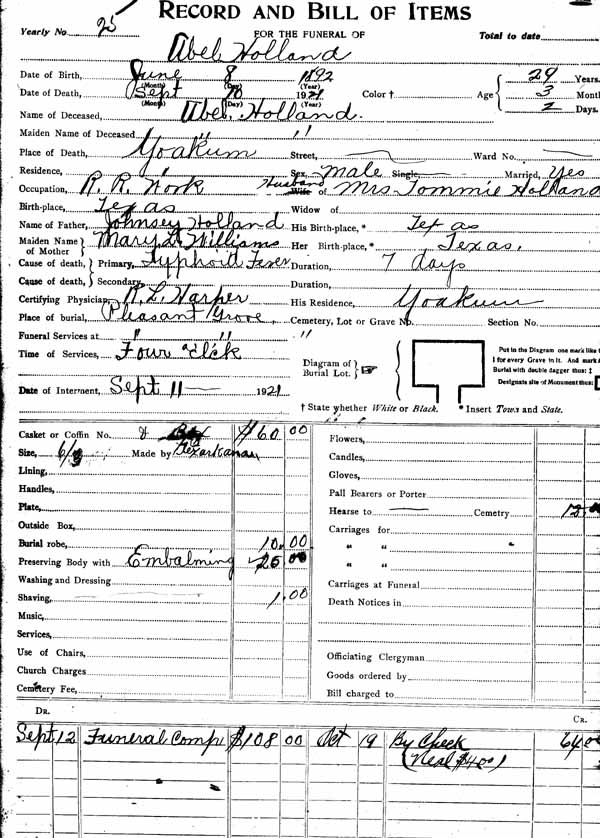 RECORD AND BILL OF ITEMS
Yearly No. FOR THE FUNERAL OF Total to date
Abel Holland
Date of Birth, June 8 1892 29 Years.
(Month) (Day) (Year)
Date of Death, Sept 1921 Color † Age 3 Month
(Month) (Day) (Year) 2 Days.
Name of Deceased, Abel Holland.
Maiden Name of Deceased " "
Place of Death, Yoakum Street, Ward No.
Residence, Sex, Male Single, Married, Yes
Occupation, R. R. Work Husband Wife of Mrs Tommie Holland
Birth-place, Texas Widow of
Name of Father, Johnsey Holland His Birth-place,* Texas
Maiden Name of Mother Mary Williams Her Birth-place,* Texas.
Cause of death, Primary, Typhoid Fever Duration, 7 days
Cause of death, Secondary, Duration,
Certifying Physician, R. L. Harper His Residence, Yoakum
Place of burial, Pleasant Grove Cemetery, Lot or Grave No. Section No.
Funeral Services at " " "
Time of Services, Four
Diagram of Burial Lot. ☞
Put in the Diagram one mark like t
for every Grave in it. And mark
Burial with double dagger thus: ‡
Designate site of Monument thus:
Date of Interment, Sept 11 1921
† State whether White or Black. * Insert Town and State.
Casket or Coffin No. $60 00 Flowers,
Size, 6/3 Made by Texarkana Candles,
Lining, Gloves,
Handles, Pall Bearers or Porter
Plate, Hearse to Cemetry 12
Outside Box, Carriages for
Burial robe, 10.00 " "
Preserving Body with Embalming 25 00 " "
Washing and Dressing Carriages at Funeral
Shaving, 1.00 Death Notices in
Music,
Services,
Use of Chairs, Officiating Clergyman
Church Charges Goods ordered by
Cemetery Fee, Bill charged to
DR. CR.
Sept 12 Funeral Comp $108 00 Oct 19 By Check 64 0